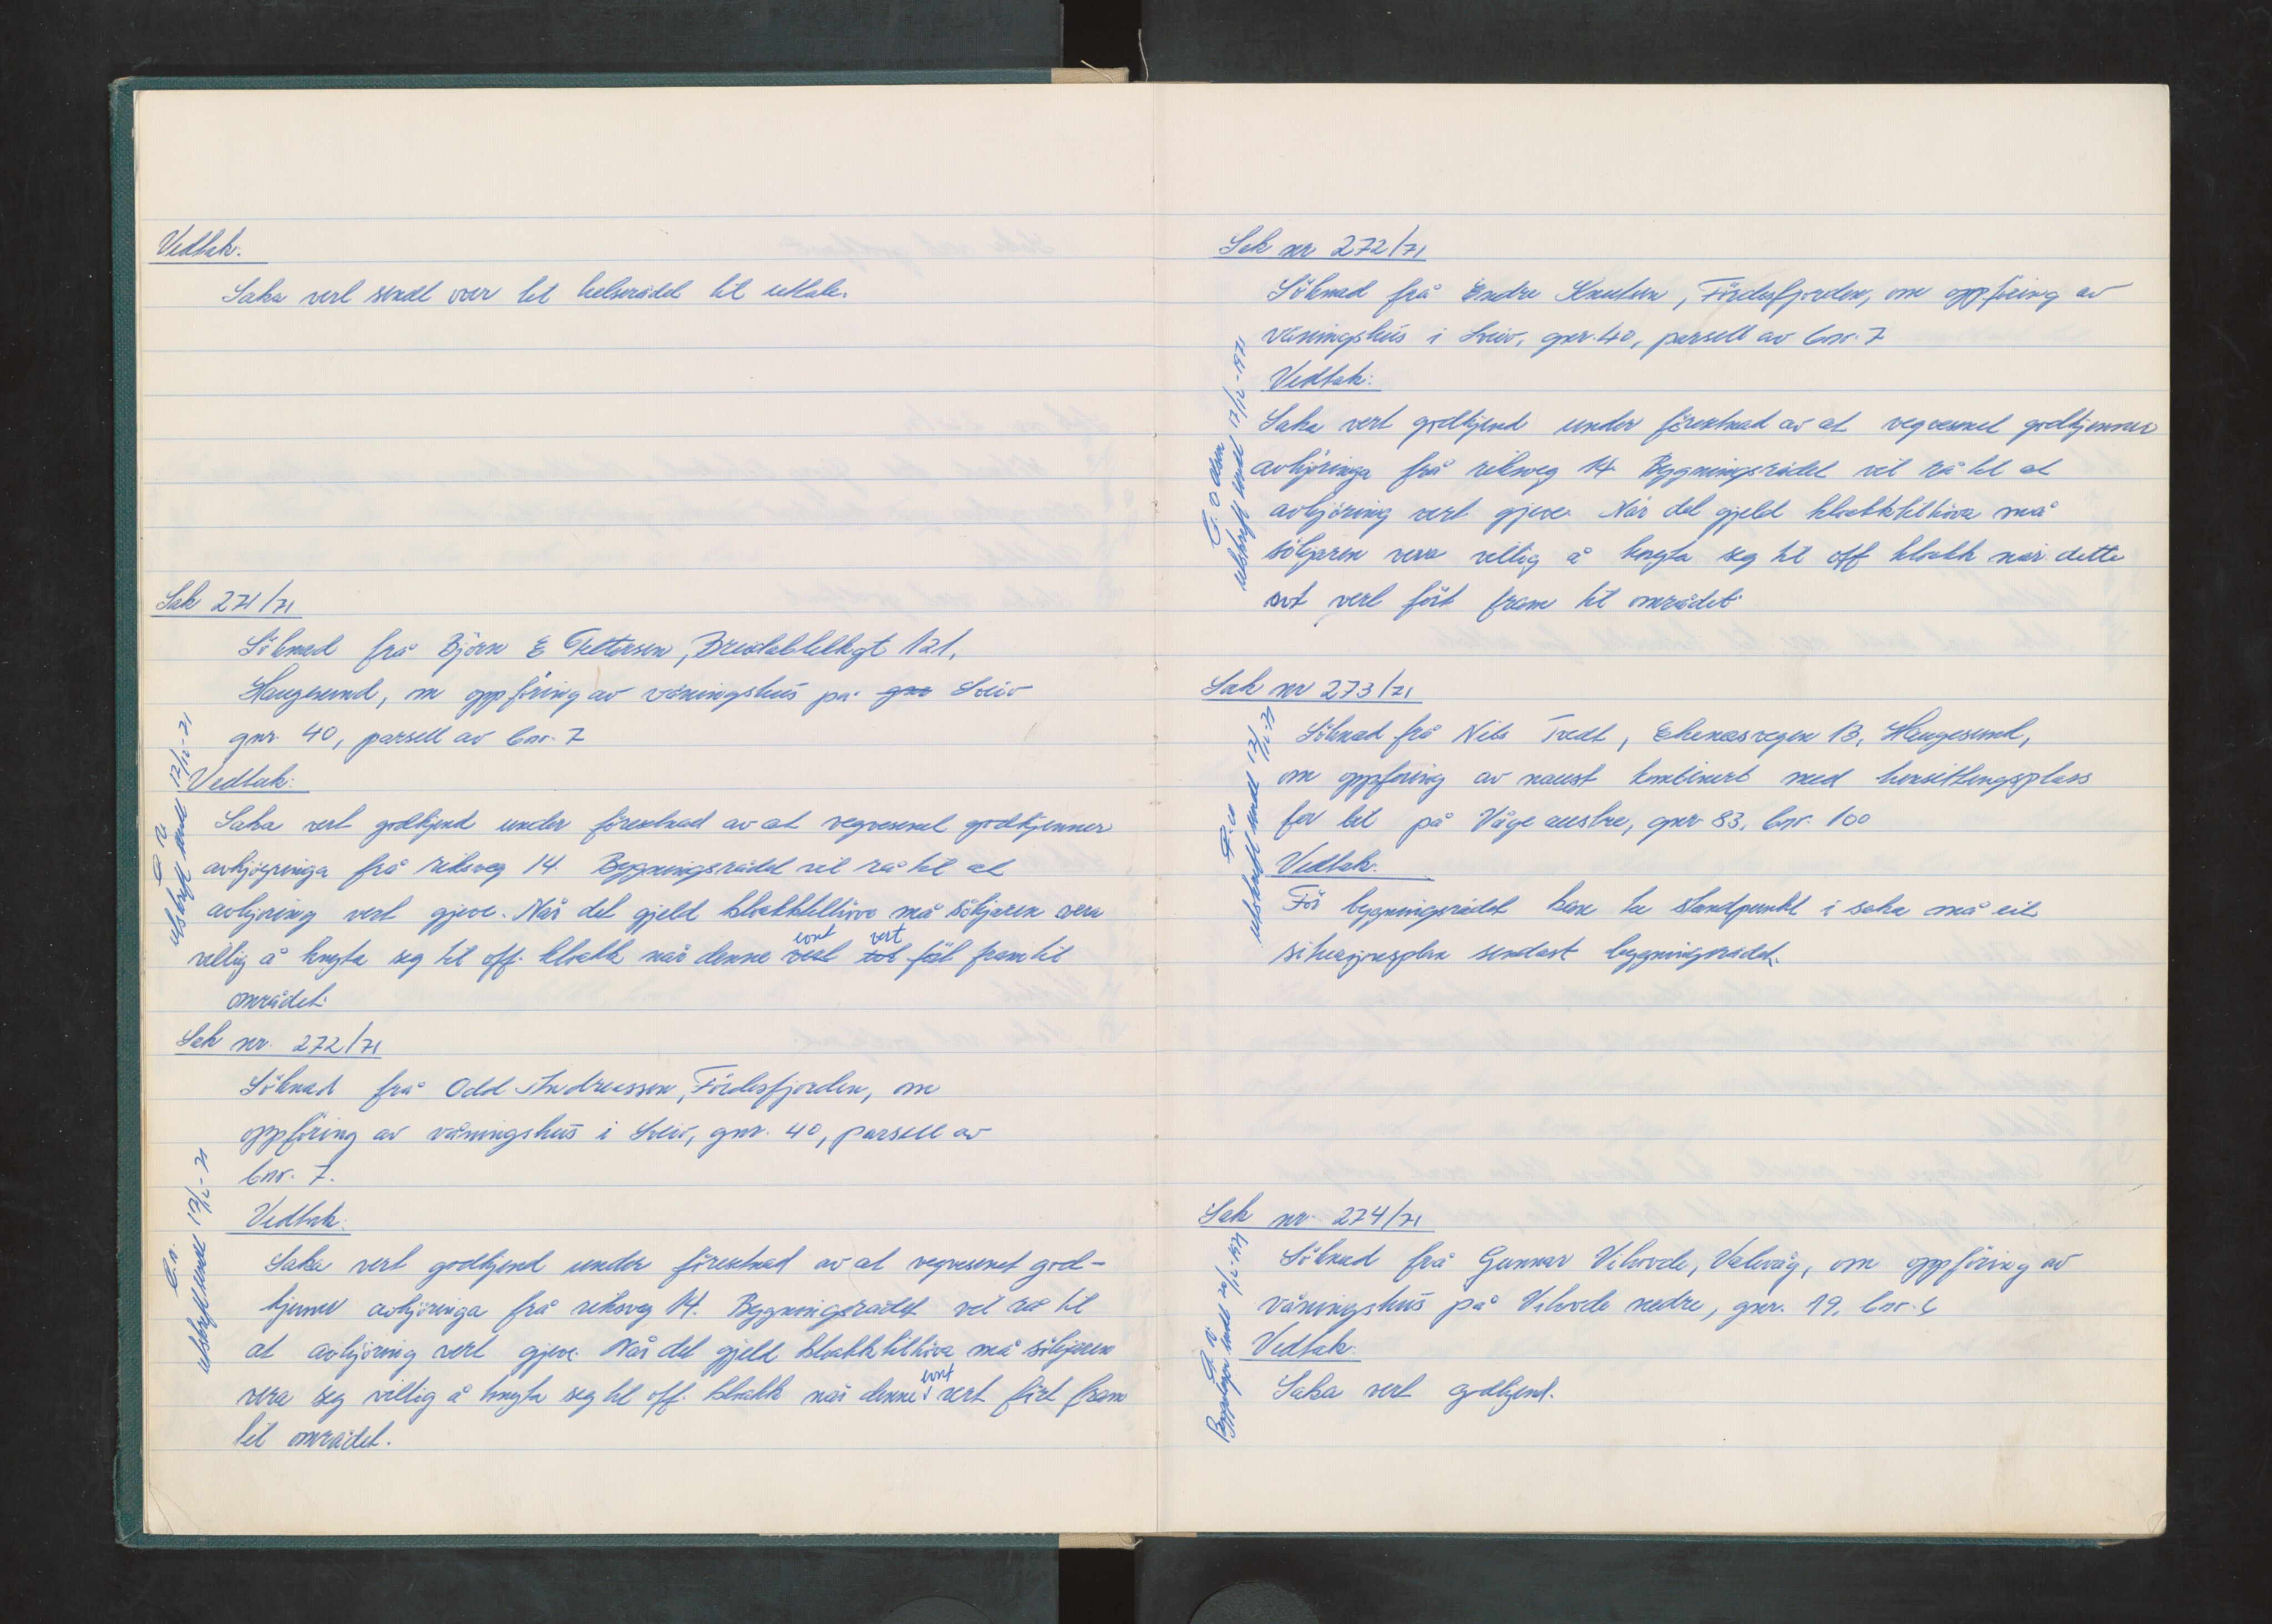 Vedtak.
Saka vert sendt over til helserådet til uttale.
Sak 271/71
Söknad frå Björn E Pettersen, Breidablikkgt 121,
Haugesund, om oppföring av våningshus på gnr Sveio
gnr. 40, parsell av bnr. 7
Vedtak:
Saka vert godkjend under föresetnad av at vegvesenet godkjenner
avkjöyringa frå riksveg 14. Bygningsrådet vil rå til at
avkjöring vert gjeve. Når det gjeld kloakktilhöve må sökjaren vera
villig å knyta seg til off. kloakk når denne evnt vert fört fram til
området.
utskrift sendt 17/12-71
Sak nr. 272/71
Söknad frå Odd Andreassen, Fördesfjorden, om
oppföring av våningshus i Sveio, gnr. 40, parsell av
bnr. 7.
Vedtak:
Saka vert godkjend under föresetnad av at vegvesenet god-
kjenner avkjöringa frå riksveg 14. Bygningsrådet vil rå til
at avkjöring vert gjeve. Når det gjeld kloakktilhöva må sökjaren
vera seg villig å knyta seg til off. kloakk når denne evnt vert fört fram
til området.
utskrift sendt 17/12-71
Sak nr 272/71
Söknad frå Endre Knutsen, Fördesfjorden, om oppföring av
våningshus i Sveio, gnr. 40, parsell av bnr. 7
Vedtak:
Saka vert godkjend under föresetnad av at vegvesenet godkjenner
avkjöringa frå riksveg 14. Bygningsrådet vil rå til at
avkjöring vert gjeve. Når det gjeld kloakktilhöva må
sökjaren vera villig å knyta seg til off kloakk når dette
evt vert fört fram til området.
utskrift sendt 17/12-1971
Sak nr 273/71
Söknad frå Nils Tvedt, Ekenæsvegen 13, Haugesund,
om oppföring av naust kombinert med hensittingsplass
for bil på Våge austre, gnr. 83, bnr. 100
Vedtak.
För bygningsrådet kan ta standpunkt i saka må eit
situasjonsplan sendast bygningsrådet.
utskrift sendt 17/12-71
Sak nr. 274/71
Söknad frå Gunnar Vihovde, Valevåg, om oppföring av
våningshus på Vihovde nedre, gnr. 19, bnr. 6
Vedtak:
Saka vert godkjend.